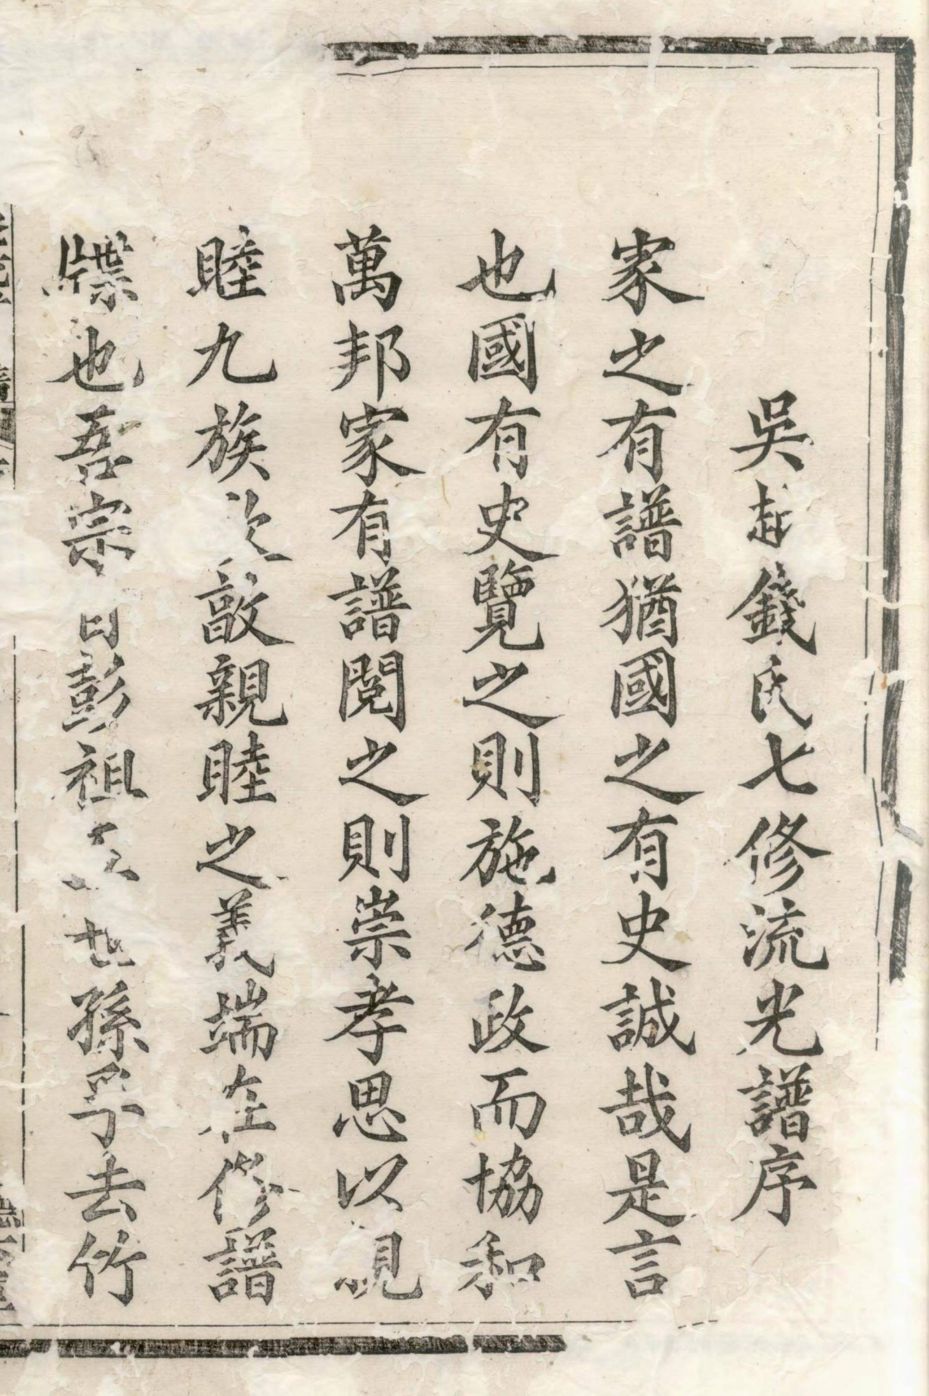 吳越錢氏七修流光譜序
家之有譜猶國之有史誠哉是言
也國有史覽之則施德政而協和
萬邦家有譜閱之則崇孝思以親
睦九族欲敦親睦之義端在修譜
牒也吾宗自彭祖五世孫孚去竹